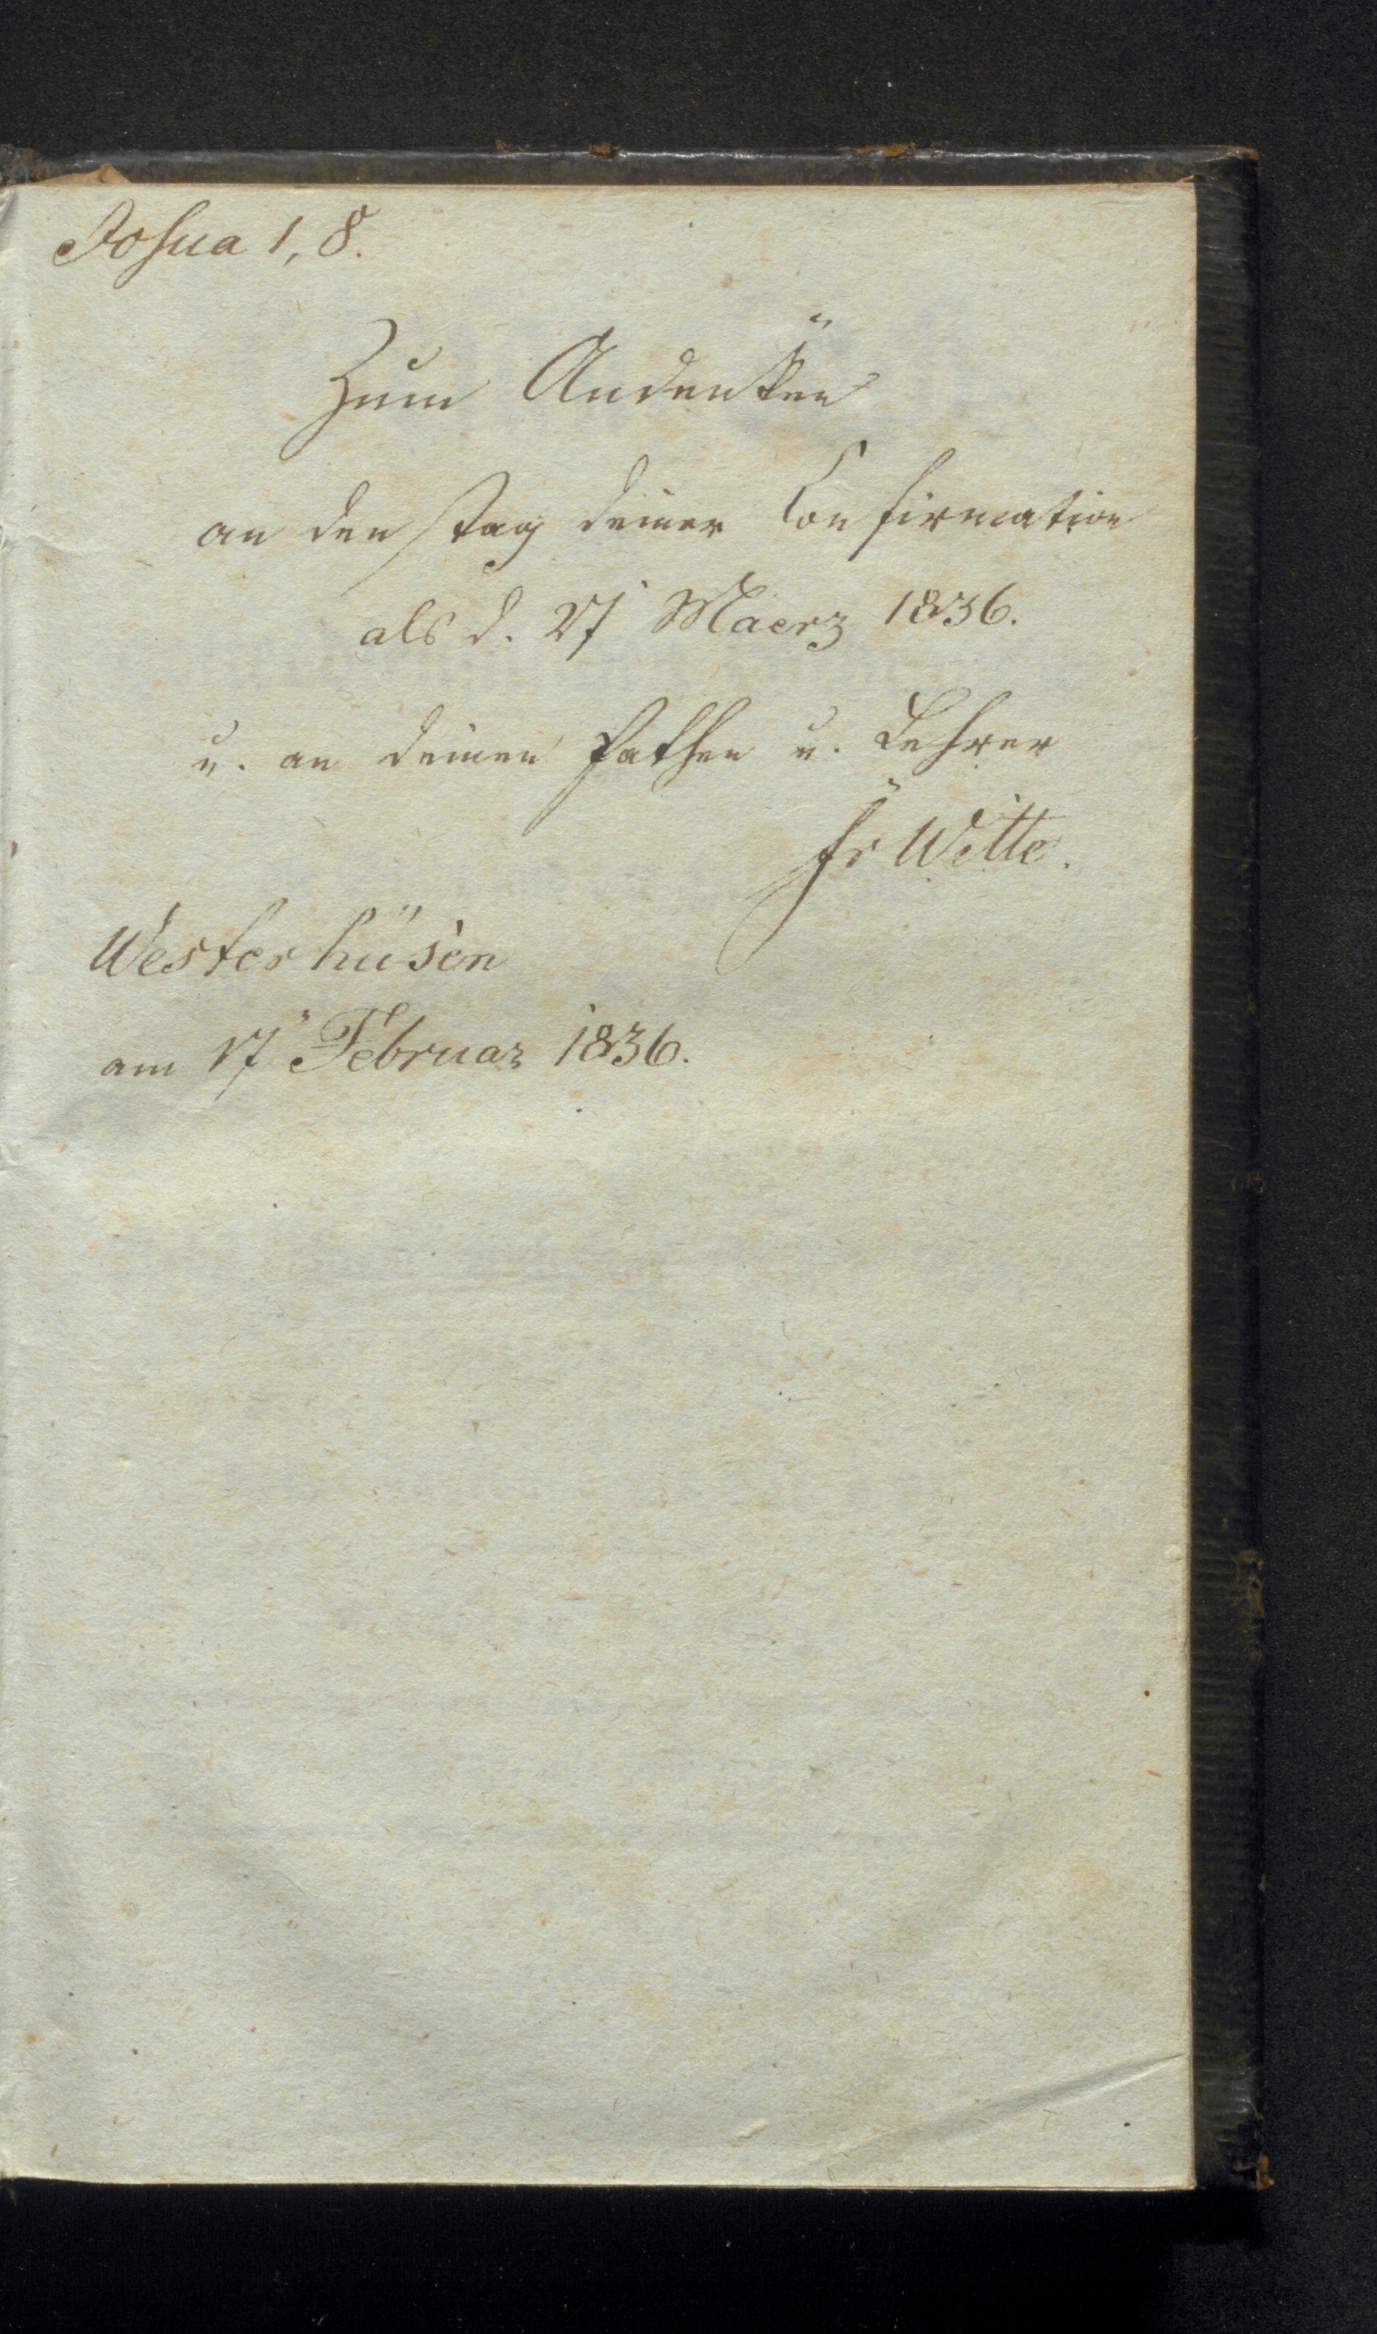 Josua 1, 8.
Zum Andenken
an den Tag deiner Confirmation
als d. 27 Maerz 1836.
u. an deinen Pathen u. Lehrer
Fr Witte.
Westerhüsen
am 17 Februar 1836.